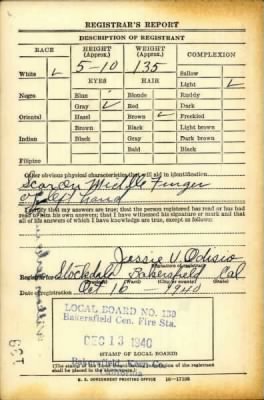 REGISTRAR'S REPORT
DESCRIPTION OF REGISTRANT
RACE HEIGHT (Approx.) WEIGHT (Approx.) COMPLEXION
White ✓ 5-10 135 Sallow
EYES HAIR Light ✓
Negro Blue Blonde Ruddy
Gray ✓ Red Dark
Oriental Hazel Brown ✓ Freckled
Brown Black Light brown
Indian Black Gray Dark brown
Bald Black
Filipino
Other obvious physical characteristics that will aid in identification
Scar on Middle Finger
of left hand
I certify that my answers are true; that the person registered has read or has had
read to him his own answers; that I have witnessed his signature or mark and that
all of his answers of which I have knowledge are true, except as follows:
Jessie V. Odisio
(Signature of registrar)
Registrar for Stockdale Bakersfield Cal
(Precinct) (Ward) (City or county) (State)
Date of registration Oct 16 - 1940
LOCAL BOARD NO. 139
Bakersfield Cen. Fire Sta.
DEC 13 1940
Bakersfield, Kern Co.
California
(STAMP OF LOCAL BOARD)
(The stamp of the Local Board having jurisdiction of the registrant
shall be placed in the above space.)
U. S. GOVERNMENT PRINTING OFFICE 16-17105